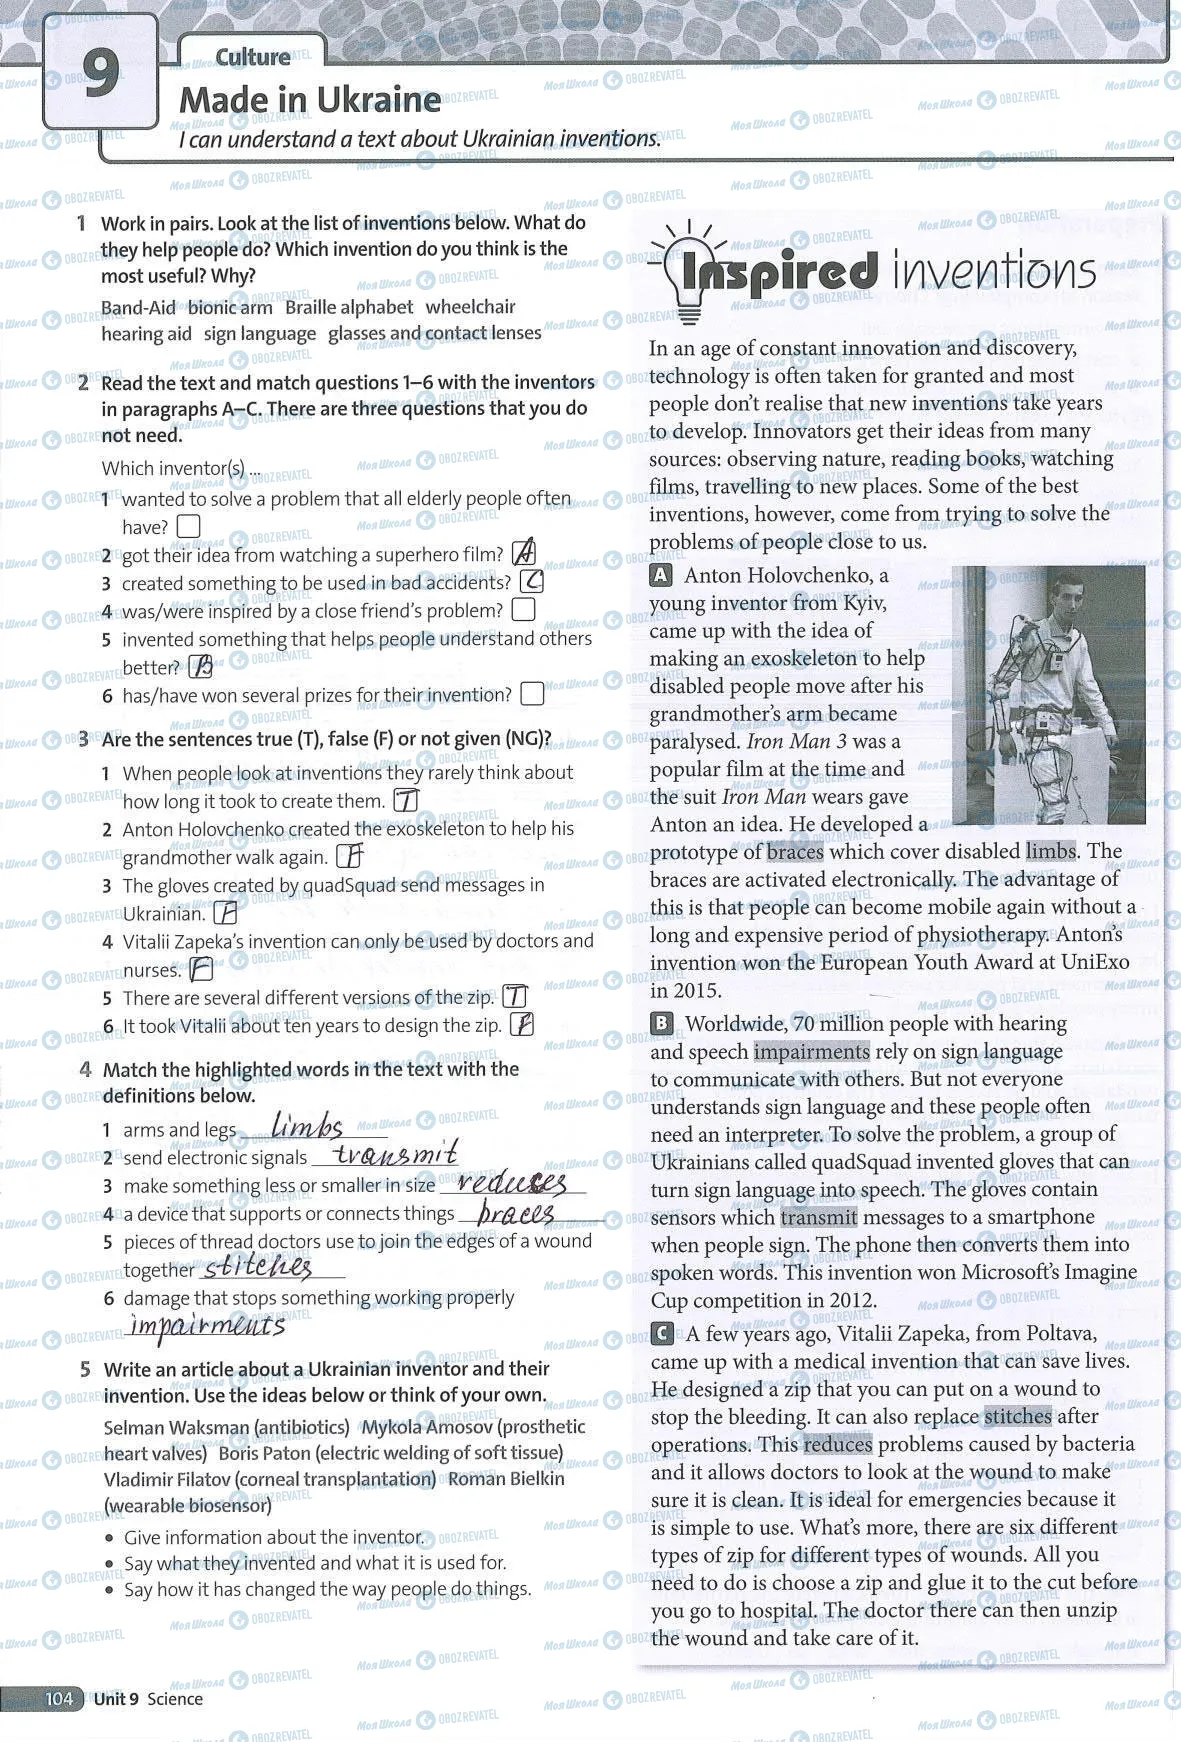 9
Culture
Made in Ukraine
I can understand a text about Ukrainian inventions.
1 Work in pairs. Look at the list of inventions below. What do
they help people do? Which invention do you think is the
most useful? Why?
Band-Aid bionic arm Braille alphabet wheelchair
hearing aid sign language glasses and contact lenses
2 Read the text and match questions 1–6 with the inventors
in paragraphs A–C. There are three questions that you do
not need.
Which inventor(s) ...
1 wanted to solve a problem that all elderly people often
have?
2 got their idea from watching a superhero film? A
3 created something to be used in bad accidents? C
4 was/were inspired by a close friend's problem?
5 invented something that helps people understand others
better? B
6 has/have won several prizes for their invention?
3 Are the sentences true (T), false (F) or not given (NG)?
1 When people look at inventions they rarely think about
how long it took to create them. T
2 Anton Holovchenko created the exoskeleton to help his
grandmother walk again. F
3 The gloves created by quadSquad send messages in
Ukrainian. F
4 Vitalii Zapeka's invention can only be used by doctors and
nurses. F
5 There are several different versions of the zip. T
6 It took Vitalii about ten years to design the zip. F
4 Match the highlighted words in the text with the
definitions below.
1 arms and legs limbs
2 send electronic signals transmit
3 make something less or smaller in size reduces
4 a device that supports or connects things braces
5 pieces of thread doctors use to join the edges of a wound
together stitches
6 damage that stops something working properly
impairments
5 Write an article about a Ukrainian inventor and their
invention. Use the ideas below or think of your own.
Selman Waksman (antibiotics) Mykola Amosov (prosthetic
heart valves) Boris Paton (electric welding of soft tissue)
Vladimir Filatov (corneal transplantation) Roman Bielkin
(wearable biosensor)
• Give information about the inventor.
• Say what they invented and what it is used for.
• Say how it has changed the way people do things.
104 Unit 9 Science
Inspired inventions
In an age of constant innovation and discovery,
technology is often taken for granted and most
people don't realise that new inventions take years
to develop. Innovators get their ideas from many
sources: observing nature, reading books, watching
films, travelling to new places. Some of the best
inventions, however, come from trying to solve the
problems of people close to us.
A Anton Holovchenko, a
young inventor from Kyiv,
came up with the idea of
making an exoskeleton to help
disabled people move after his
grandmother's arm became
paralysed. Iron Man 3 was a
popular film at the time and
the suit Iron Man wears gave
Anton an idea. He developed a
prototype of braces which cover disabled limbs. The
braces are activated electronically. The advantage of
this is that people can become mobile again without a
long and expensive period of physiotherapy. Anton's
invention won the European Youth Award at UniExo
in 2015.
B Worldwide, 70 million people with hearing
and speech impairments rely on sign language
to communicate with others. But not everyone
understands sign language and these people often
need an interpreter. To solve the problem, a group of
Ukrainians called quadSquad invented gloves that can
turn sign language into speech. The gloves contain
sensors which transmit messages to a smartphone
when people sign. The phone then converts them into
spoken words. This invention won Microsoft's Imagine
Cup competition in 2012.
C A few years ago, Vitalii Zapeka, from Poltava,
came up with a medical invention that can save lives.
He designed a zip that you can put on a wound to
stop the bleeding. It can also replace stitches after
operations. This reduces problems caused by bacteria
and it allows doctors to look at the wound to make
sure it is clean. It is ideal for emergencies because it
is simple to use. What's more, there are six different
types of zip for different types of wounds. All you
need to do is choose a zip and glue it to the cut before
you go to hospital. The doctor there can then unzip
the wound and take care of it.
Моя Школа OBOZREVATEL